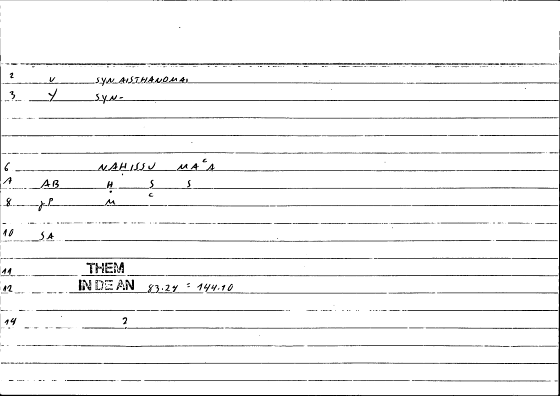 2 V SYN.AISTHANOMAI
3 Y SYN-
6 NAḤISSU MAᶜA
7 AB Ḥ S S
8 gP M C
10 SA
11 THEM
12 IN DE AN 83.24 = 144.10
14 2